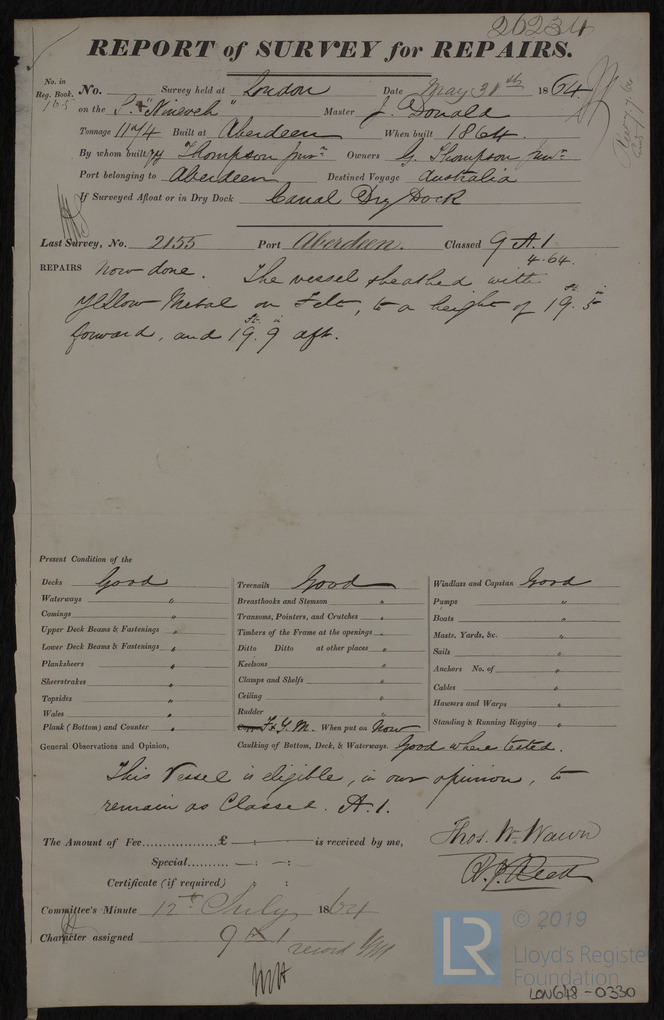 26234
REPORT of SURVEY for REPAIRS.
No. in Reg. Book. 165 No. Survey held at London Date May 31st 1864
on the S. "Nineveh" Master J. Donald
Tonnage 1174 Built at Aberdeen When built 1864.
By whom built Thompson junr. Owners G. Thompson junr.
Port belonging to Aberdeen Destined Voyage Australia
If Surveyed Afloat or in Dry Dock Canal Dry Dock
Last Survey, No. 2155 Port Aberdeen. Classed 9 A.1
4.64.
REPAIRS Now done. The vessel sheathed with
Yellow Metal on Felt, to a height of 19 ft. 5 in
forward, and 19 ft. 9 in aft.
Present Condition of the
Decks Good Treenails Good Windlass and Capstan Good
Waterways " Breasthooks and Stemson " Pumps "
Comings " Transoms, Pointers, and Crutches " Boats "
Upper Deck Beams & Fastenings " Timbers of the Frame at the openings " Masts, Yards, &c. "
Lower Deck Beams & Fastenings " Ditto Ditto at other places " Sails "
Planksheers " Keelsons " Anchors No. of "
Sheerstrakes " Clamps and Shelfs " Cables "
Topsides " Ceiling " Hawsers and Warps "
Wales " Rudder " Standing & Running Rigging "
Plank (Bottom) and Counter " F & Y.M. When put on Now
General Observations and Opinion, Caulking of Bottom, Deck, & Waterways. Good where tested.
This Vessel is eligible, in our opinion, to
remain as Classed. A.1.
The Amount of Fee.................£ — : — is received by me, Thos. W. Wawn
Special.......... — : — :
Certificate (if required) : :
Committee's Minute 12th July 1864
Character assigned 9 A 1
record YM
© 2019
LR
Lloyd's Register
Foundation
LON648-0330